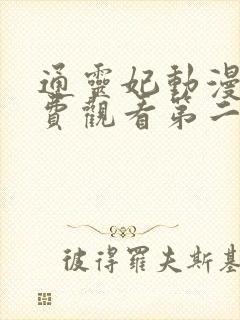 通靈妃動漫
費觀看第二
彼得羅夫斯基